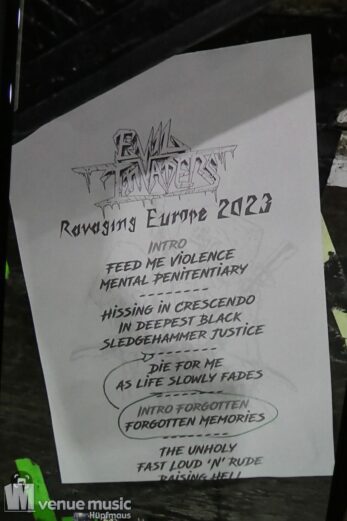 EVIL
INVADERS
Ravaging Europe 2023
INTRO
FEED ME VIOLENCE
MENTAL PENITENTIARY
----------
HISSING IN CRESCENDO
IN DEEPEST BLACK
SLEDGEHAMMER JUSTICE
----------
DIE FOR ME
AS LIFE SLOWLY FADES
----------
INTRO FORGOTTEN
FORGOTTEN MEMORIES
----------
THE UNHOLY
FAST LOUD 'N' RUDE
RAISING HELL
venue music
Hüpfmaus